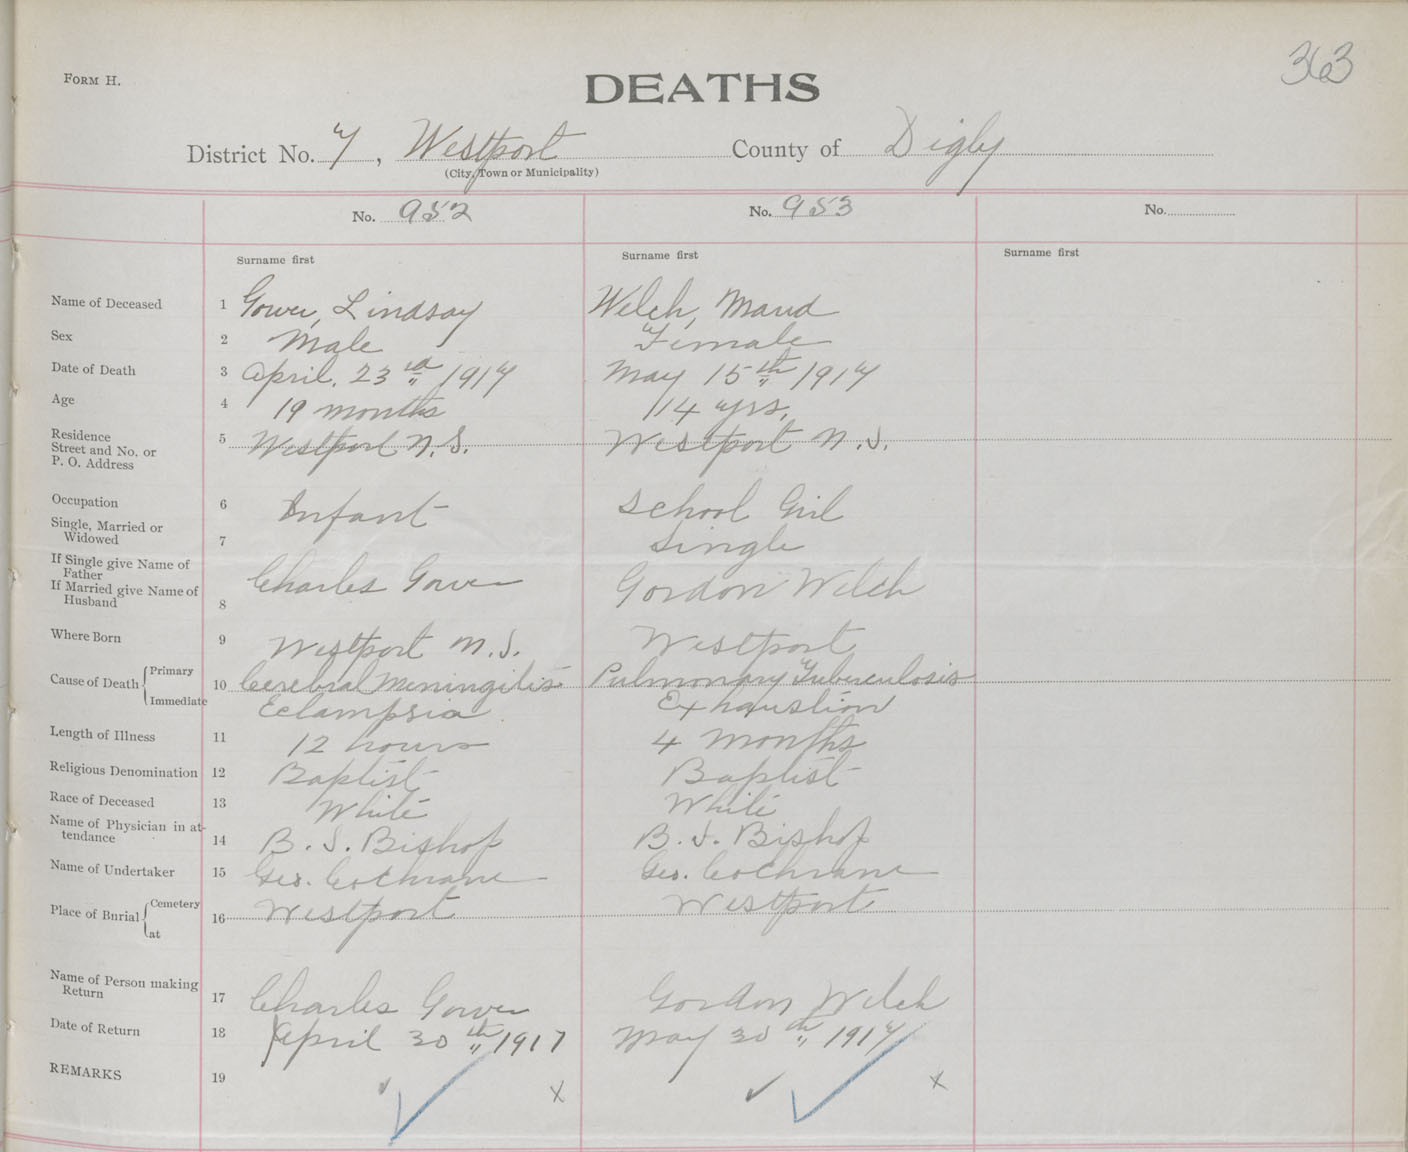 363
FORM H.
DEATHS
District No. 7, Westport County of Digby
(City, Town or Municipality)
No. 952 No. 953 No.
Surname first Surname first Surname first
Name of Deceased 1 Gower, Lindsay Welch, Maud
Sex 2 Male Female
Date of Death 3 April, 23rd 1917 May 15th 1917
Age 4 19 months 14 yrs.
Residence 5 Westport N.S. Westport N.S.
Street and No. or
P. O. Address
Occupation 6 Infant School Girl
Single, Married or
Widowed 7 Single
If Single give Name of
Father
If Married give Name of
Husband 8 Charles Gower Gordon Welch
Where Born 9 Westport N.S. Westport
Cause of Death { Primary 10 Cerebral Meningitis Pulmonary Tuberculosis
Immediate Eclampsia Exhaustion
Length of Illness 11 12 hours 4 months
Religious Denomination 12 Baptist Baptist
Race of Deceased 13 White White
Name of Physician in at-
tendance 14 B. J. Bishop B. J. Bishop
Name of Undertaker 15 Geo. Cochrane Geo. Cochrane
Place of Burial { Cemetery 16 Westport Westport
at
Name of Person making
Return 17 Charles Gower Gordon Welch
Date of Return 18 April 30th 1917 May 30th 1917
REMARKS 19 x x